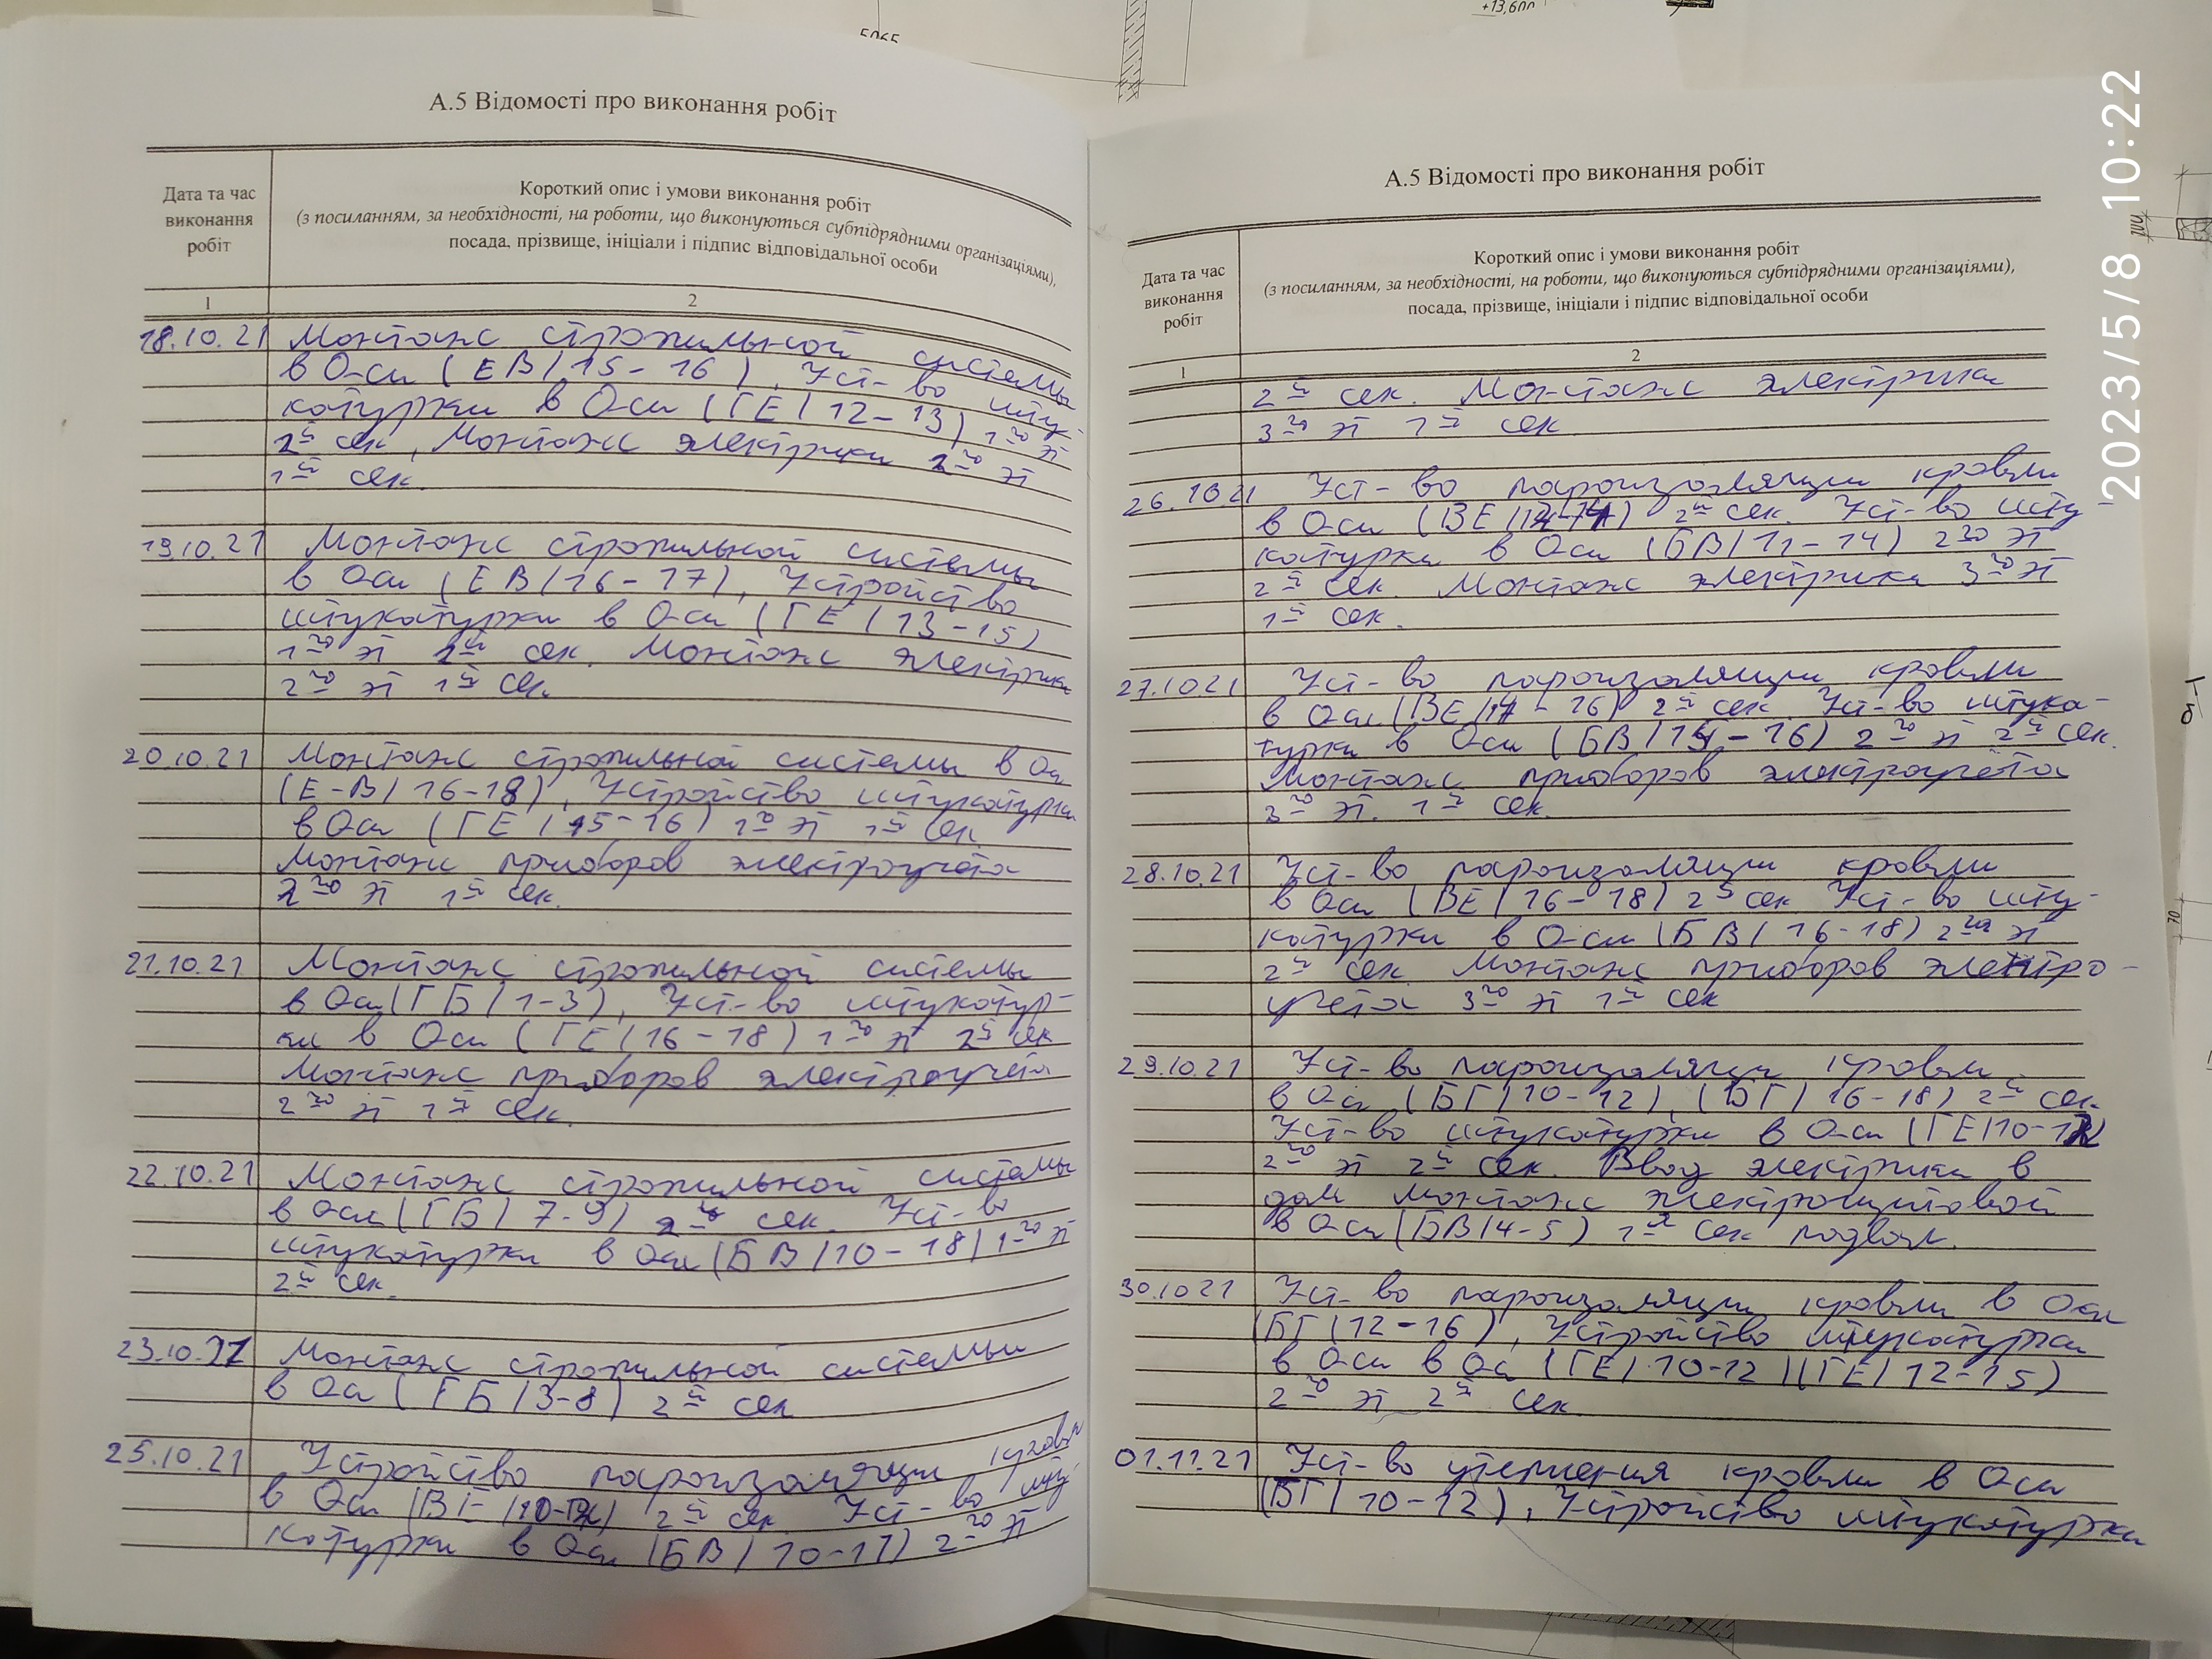 5065
+13,600
2023/5/8 10:22
А.5 Відомості про виконання робіт
Дата та час
виконання
робіт
Короткий опис і умови виконання робіт
(з посиланням, за необхідності, на роботи, що виконуються субпідрядними організаціями),
посада, прізвище, ініціали і підпис відповідальної особи
1
2
18.10.21 Монтаж стропильной системы
в Оси (ЕВ/15-16), Уст-во шту-
катурки в Оси (ГЕ/12-13) 1го эт
2й сек, Монтаж электрики 2го эт
1й сек.
19.10.21 Монтаж стропильной системы
в Оси (ЕВ/16-17), Устройство
штукатурки в Оси (ГЕ/13-15)
1го эт 2й сек. Монтаж электрики
2го эт 1й сек.
20.10.21 Монтаж стропильной системы в Оси
(Е-В/16-18), Устройство штукатурки
в Оси (ГЕ/15-16) 1го эт 1й сек
Монтаж приборов электроучёта
2го эт 1й сек.
21.10.21 Монтаж стропильной системы
в Оси (ГБ/1-3), Уст-во штукатур-
ки в Оси (ГЕ/16-18) 1го эт 2й сек
Монтаж приборов электроучёта
2го эт 1й сек.
22.10.21 Монтаж стропильной системы
в Оси (ГБ/7-9) 2й сек. Уст-во
штукатурки в Оси (БВ/10-18) 1го эт
2й сек.
23.10.21 Монтаж стропильной системы
в Оси (ГБ/3-8) 2й сек
25.10.21 Устройство пароизоляции кровли
в Оси (ВЕ/10-12) 2й сек Уст-во шту
катурки в Оси (БВ/10-11) 2го эт
А.5 Відомості про виконання робіт
Дата та час
виконання
робіт
Короткий опис і умови виконання робіт
(з посиланням, за необхідності, на роботи, що виконуються субпідрядними організаціями),
посада, прізвище, ініціали і підпис відповідальної особи
1
2
2й сек. Монтаж электрики
3го эт 1й сек
26.10.21 Уст-во пароизоляции кровли
в Оси (ВЕ/12-14) 2й сек. Уст-во шту
катурки в Оси (БВ/11-14) 2го эт
2й сек. Монтаж электрики 3го эт
1й сек.
27.10.21 Уст-во пароизоляции кровли
в Оси (ВЕ/14-16) 2й сек Уст-во штука-
турки в Оси (БВ/14-16) 2го эт 2й сек.
Монтаж приборов электроучёта
3го эт. 1й сек.
28.10.21 Уст-во пароизоляции кровли
в Оси (ВЕ/16-18) 2й сек Уст-во шту-
катурки в Оси (БВ/16-18) 2го эт
2й сек Монтаж приборов электро-
учета 3го эт 1й сек
29.10.21 Уст-во пароизоляции кровли
в Оси (БГ/10-12), (БГ/16-18) 2й сек.
Уст-во штукатурки в Оси (ГЕ/10-12
2го эт 2й сек. Ввод электрики в
дом монтаж электрощитовой
в Оси (БВ/4-5) 1й сек подвал.
30.10.21 Уст-во пароизоляции кровли в Оси
(БГ/12-16), Устройство штукатурки
в Оси в Ос (ГЕ/10-12)(ГЕ/12-15)
2го эт 2й сек.
01.11.21 Уст-во утепления кровли в Оси
(ВГ/10-12), Устройство штукатурки
70